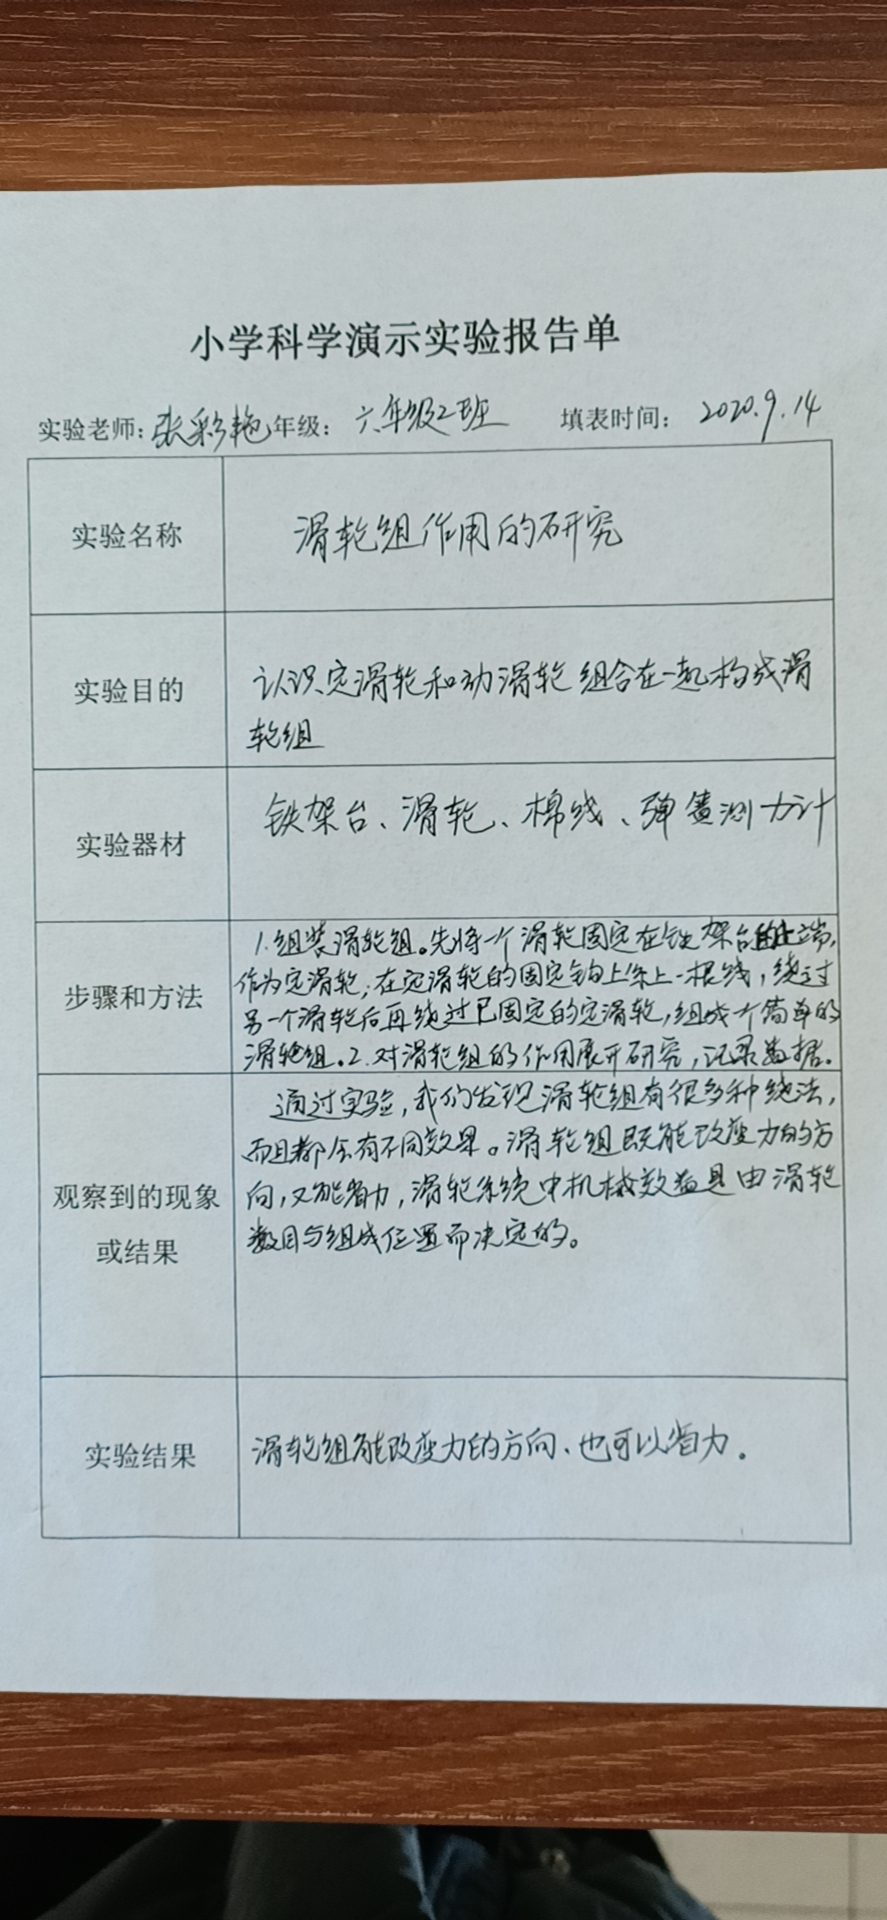 小学科学演示实验报告单
实验老师:张彩艳年级:六年级2班 填表时间:2020.9.14
实验名称
滑轮组作用的研究
实验目的
认识定滑轮和动滑轮组合在一起构成滑
轮组
实验器材
铁架台、滑轮、棉线、弹簧测力计
步骤和方法
1.组装滑轮组。先将一个滑轮固定在铁架台的上端,
作为定滑轮;在定滑轮的固定钩上系上一根线,绕过
另一个滑轮后再绕过已固定的定滑轮,组成个简单的
滑轮组。2.对滑轮组的作用展开研究,记录数据。
观察到的现象
或结果
通过实验,我们发现滑轮组有很多种绕法,
而且都会有不同效果。滑轮组既能改变力的方
向,又能省力,滑轮系统中机械效益是由滑轮
数目与组成位置而决定的。
实验结果
滑轮组能改变力的方向、也可以省力.